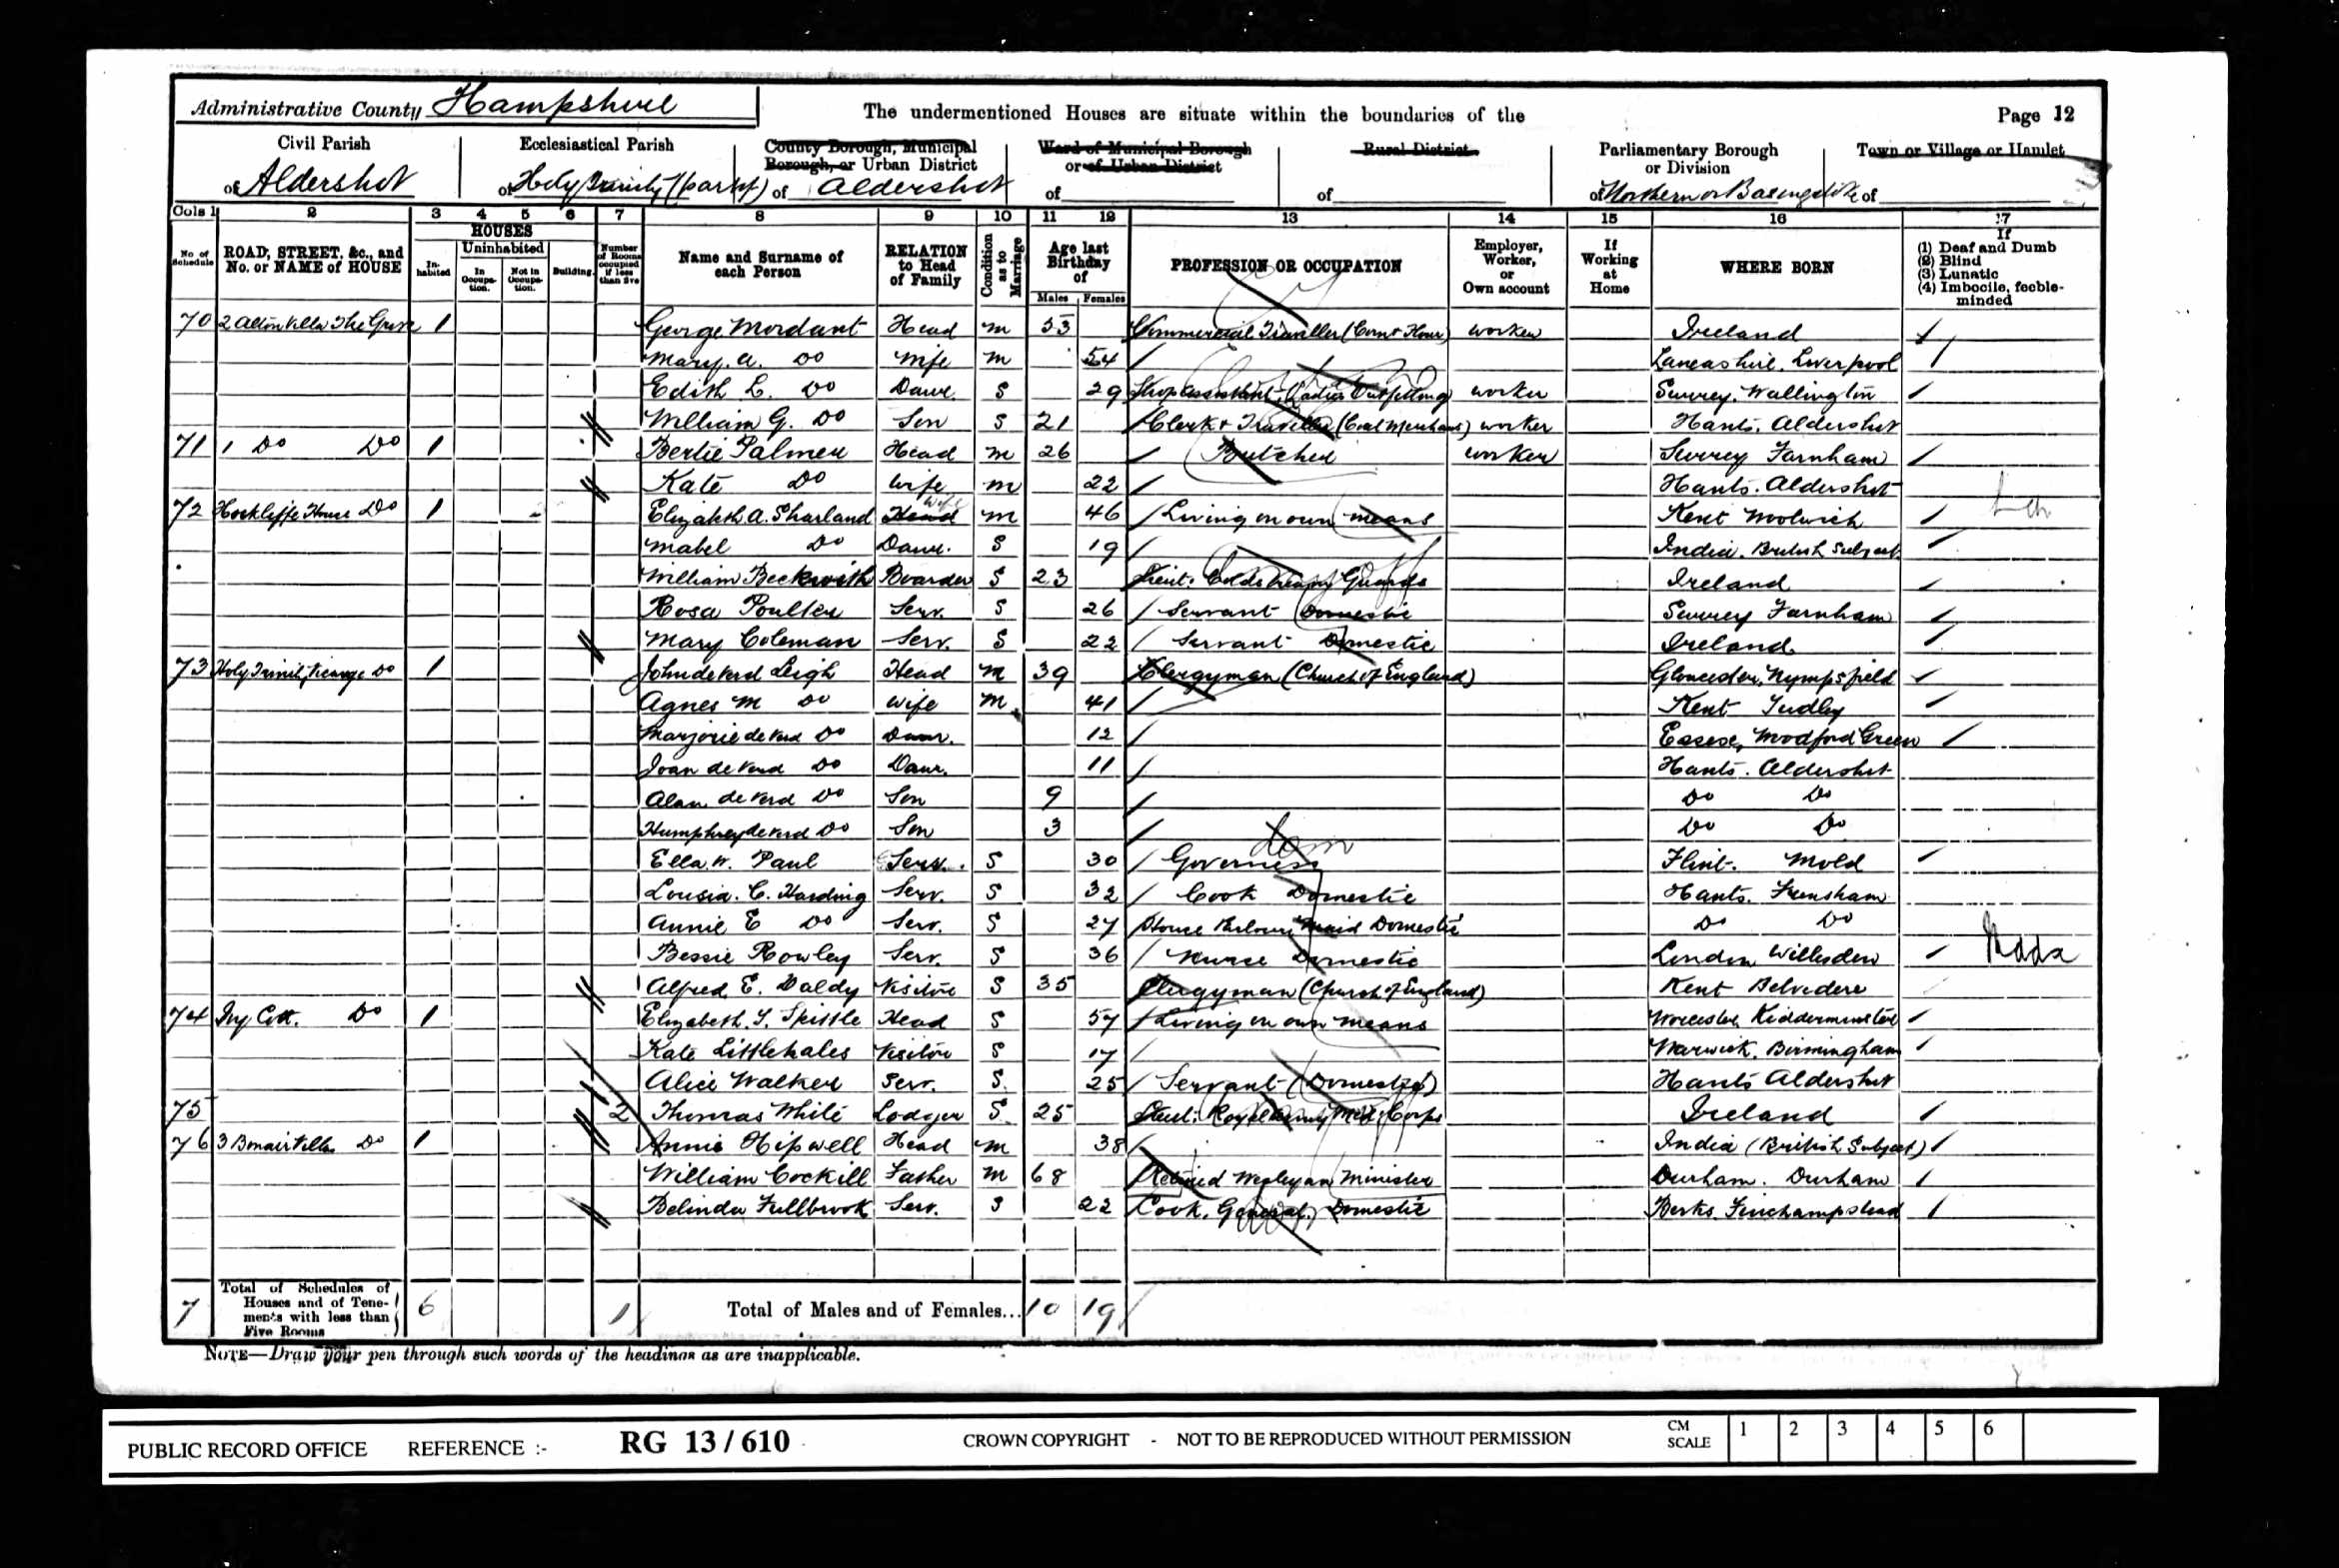 Administrative County Hampshire
The undermentioned Houses are situate within the boundaries of the
Page 12
Civil Parish
of Aldershot
Ecclesiastical Parish
of Holy Trinity (part of)
County Borough, Municipal Borough, or Urban District
of Aldershot
Ward of Municipal Borough or of Urban District
of
Rural District
of
Parliamentary Borough or Division
of Northern or Basingstoke
Town or Village or Hamlet
of
Cols 1 2 3 4 5 6 7 8 9 10 11 12 13 14 15 16 17
No of Schedule
ROAD, STREET, &c., and No. or NAME of HOUSE
HOUSES
In-habited
Uninhabited
In Occupa-tion.
Not in Occupa-tion.
Building.
Number of Rooms occupied if less than five
Name and Surname of each Person
RELATION to Head of Family
Condition as to Marriage
Age last Birthday of
Males Females
PROFESSION OR OCCUPATION
Employer, Worker, or Own account
If Working at Home
WHERE BORN
If
(1) Deaf and Dumb
(2) Blind
(3) Lunatic
(4) Imbecile, feeble-minded
70 2 Alton Villa The Grove 1 George Mordant Head M 53 Commercial Traveller (Corn & Flour) worker Ireland
Mary. A. Do Wife M 54 Lancashire. Liverpool
Edith L. Do Daur. S 29 Shop Assistant, Ladies Outfitting worker Surrey. Wallington
William G. Do Son S 21 Clerk & Traveller (Coal Merchant) worker Hants. Aldershot
71 1 Do Do 1 Bertie Palmer Head M 26 Butcher worker Surrey Farnham
Kate Do Wife M 22 Hants. Aldershot
72 Hockliffe House Do 1 Elizabeth A. Sharland Head Wife M 46 Living on own means Kent Woolwich
Mabel Do Daur. S 19 India. British Subject
William Beckwith Boarder S 23 Lieut. Coldstream Guards Ireland
Rosa Poulter Serv. S 26 Servant Domestic Surrey Farnham
Mary Coleman Serv. S 22 Servant Domestic Ireland
73 Holy Trinity Vicarage Do 1 John de Verd Leigh Head M 39 Clergyman (Church of England) Gloucester, Nympsfield
Agnes M Do Wife M 41 Kent Tudley
Marjorie de Verd Do Daur. 12 Essex, Woodford Green
Joan de Verd Do Daur. 11 Hants. Aldershot
Alan de Verd Do Son 9 Do Do
Humphrey de Verd Do Son 3 Do Do
Ella. W. Paul Serv. S 30 Governess Dom Flint. Mold
Lousia. C. Harding Serv. S 32 Cook Domestic Hants. Frensham
Annie E Do Serv. S 27 House Parlour Maid Domestic Do Do
Bessie Rowley Serv. S 36 Nurse Domestic London Willesden
Alfred E. Daldy Visitor S 35 Clergyman (Church of England) Kent Belvedere
74 Ivy Cott. Do 1 Elizabeth. Y. Spittle Head S 57 Living on own means Worcester Kidderminster
Kate Littlehales Visitor S 17 Warwick. Birmingham
Alice Walker Serv. S. 25 Servant (Domestic) Hants Aldershot
75 2 Thomas White Lodger S. 25 Lieut. Royal Army Med. Corps Ireland
76 3 Villa Do 1 Annie Hipwell Head M 38 India (British Subject)
William Cockill Father M 68 Retired Wesleyan Minister Durham. Durham
Belinda Fullbrook Serv. S 22 Cook. General. Domestic Berks. Finchampstead
7 Total of Schedules of Houses and of Tene-ments with less than Five Rooms 6 1 Total of Males and of Females... 10 19
NOTE—Draw your pen through such words of the headings as are inapplicable.
PUBLIC RECORD OFFICE REFERENCE :- RG 13 / 610 CROWN COPYRIGHT - NOT TO BE REPRODUCED WITHOUT PERMISSION CM SCALE 1 2 3 4 5 6